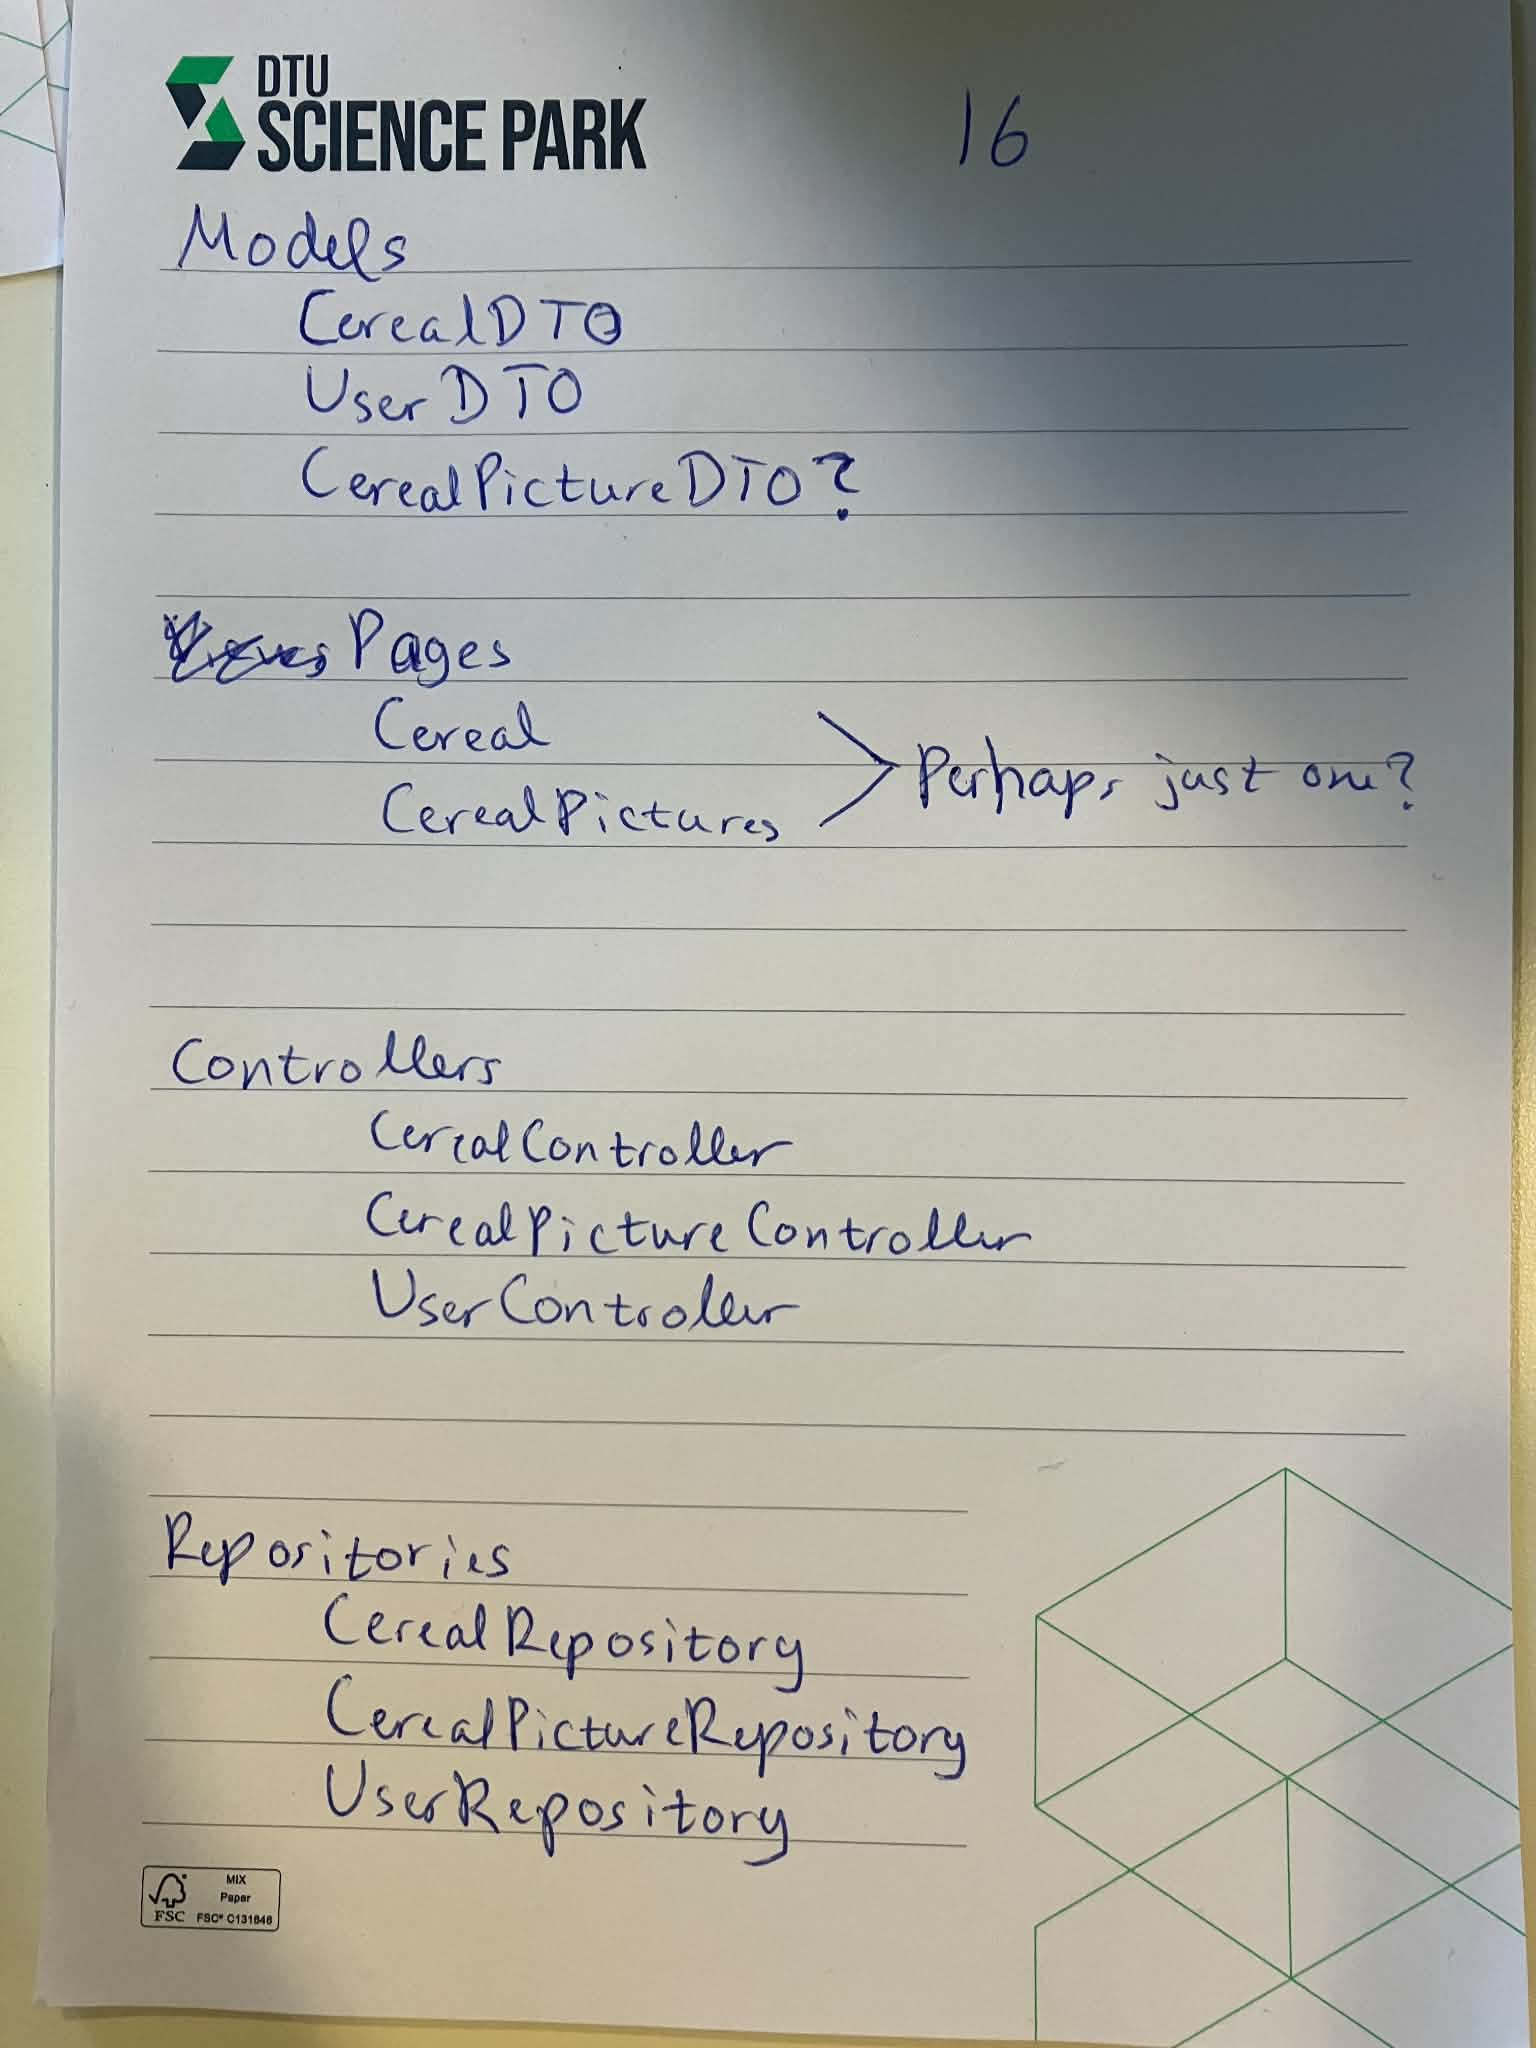 DTU
SCIENCE PARK
16
Models
CerealDTO
UserDTO
CerealPictureDTO?
Views Pages
Cereal
CerealPictures
Perhaps just one?
Controllers
CerealController
CerealPictureController
UserController
Repositories
CerealRepository
CerealPictureRepository
UserRepository
MIX
Paper
FSC
FSC® C131646